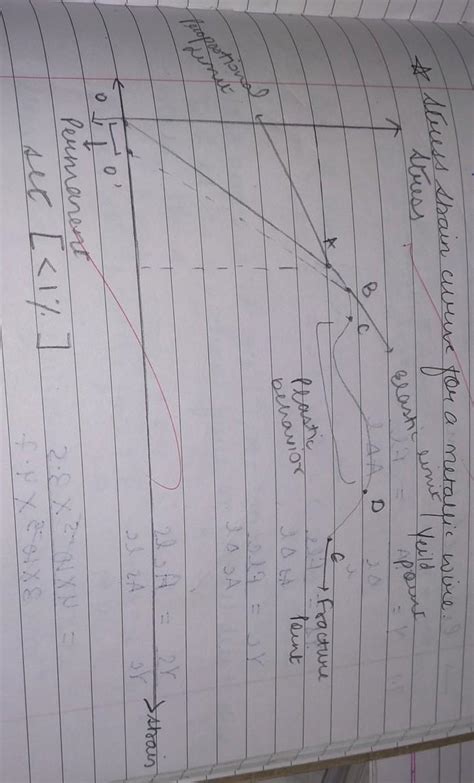 ☆ Stress strain curve for a metallic wire.
Stress
Elastic limit / Yield
point
Proportional
limit
A
B
C
D
E
Fracture
Point
Plastic
behavior
O
O'
Strain
Permanent
set [<1%]